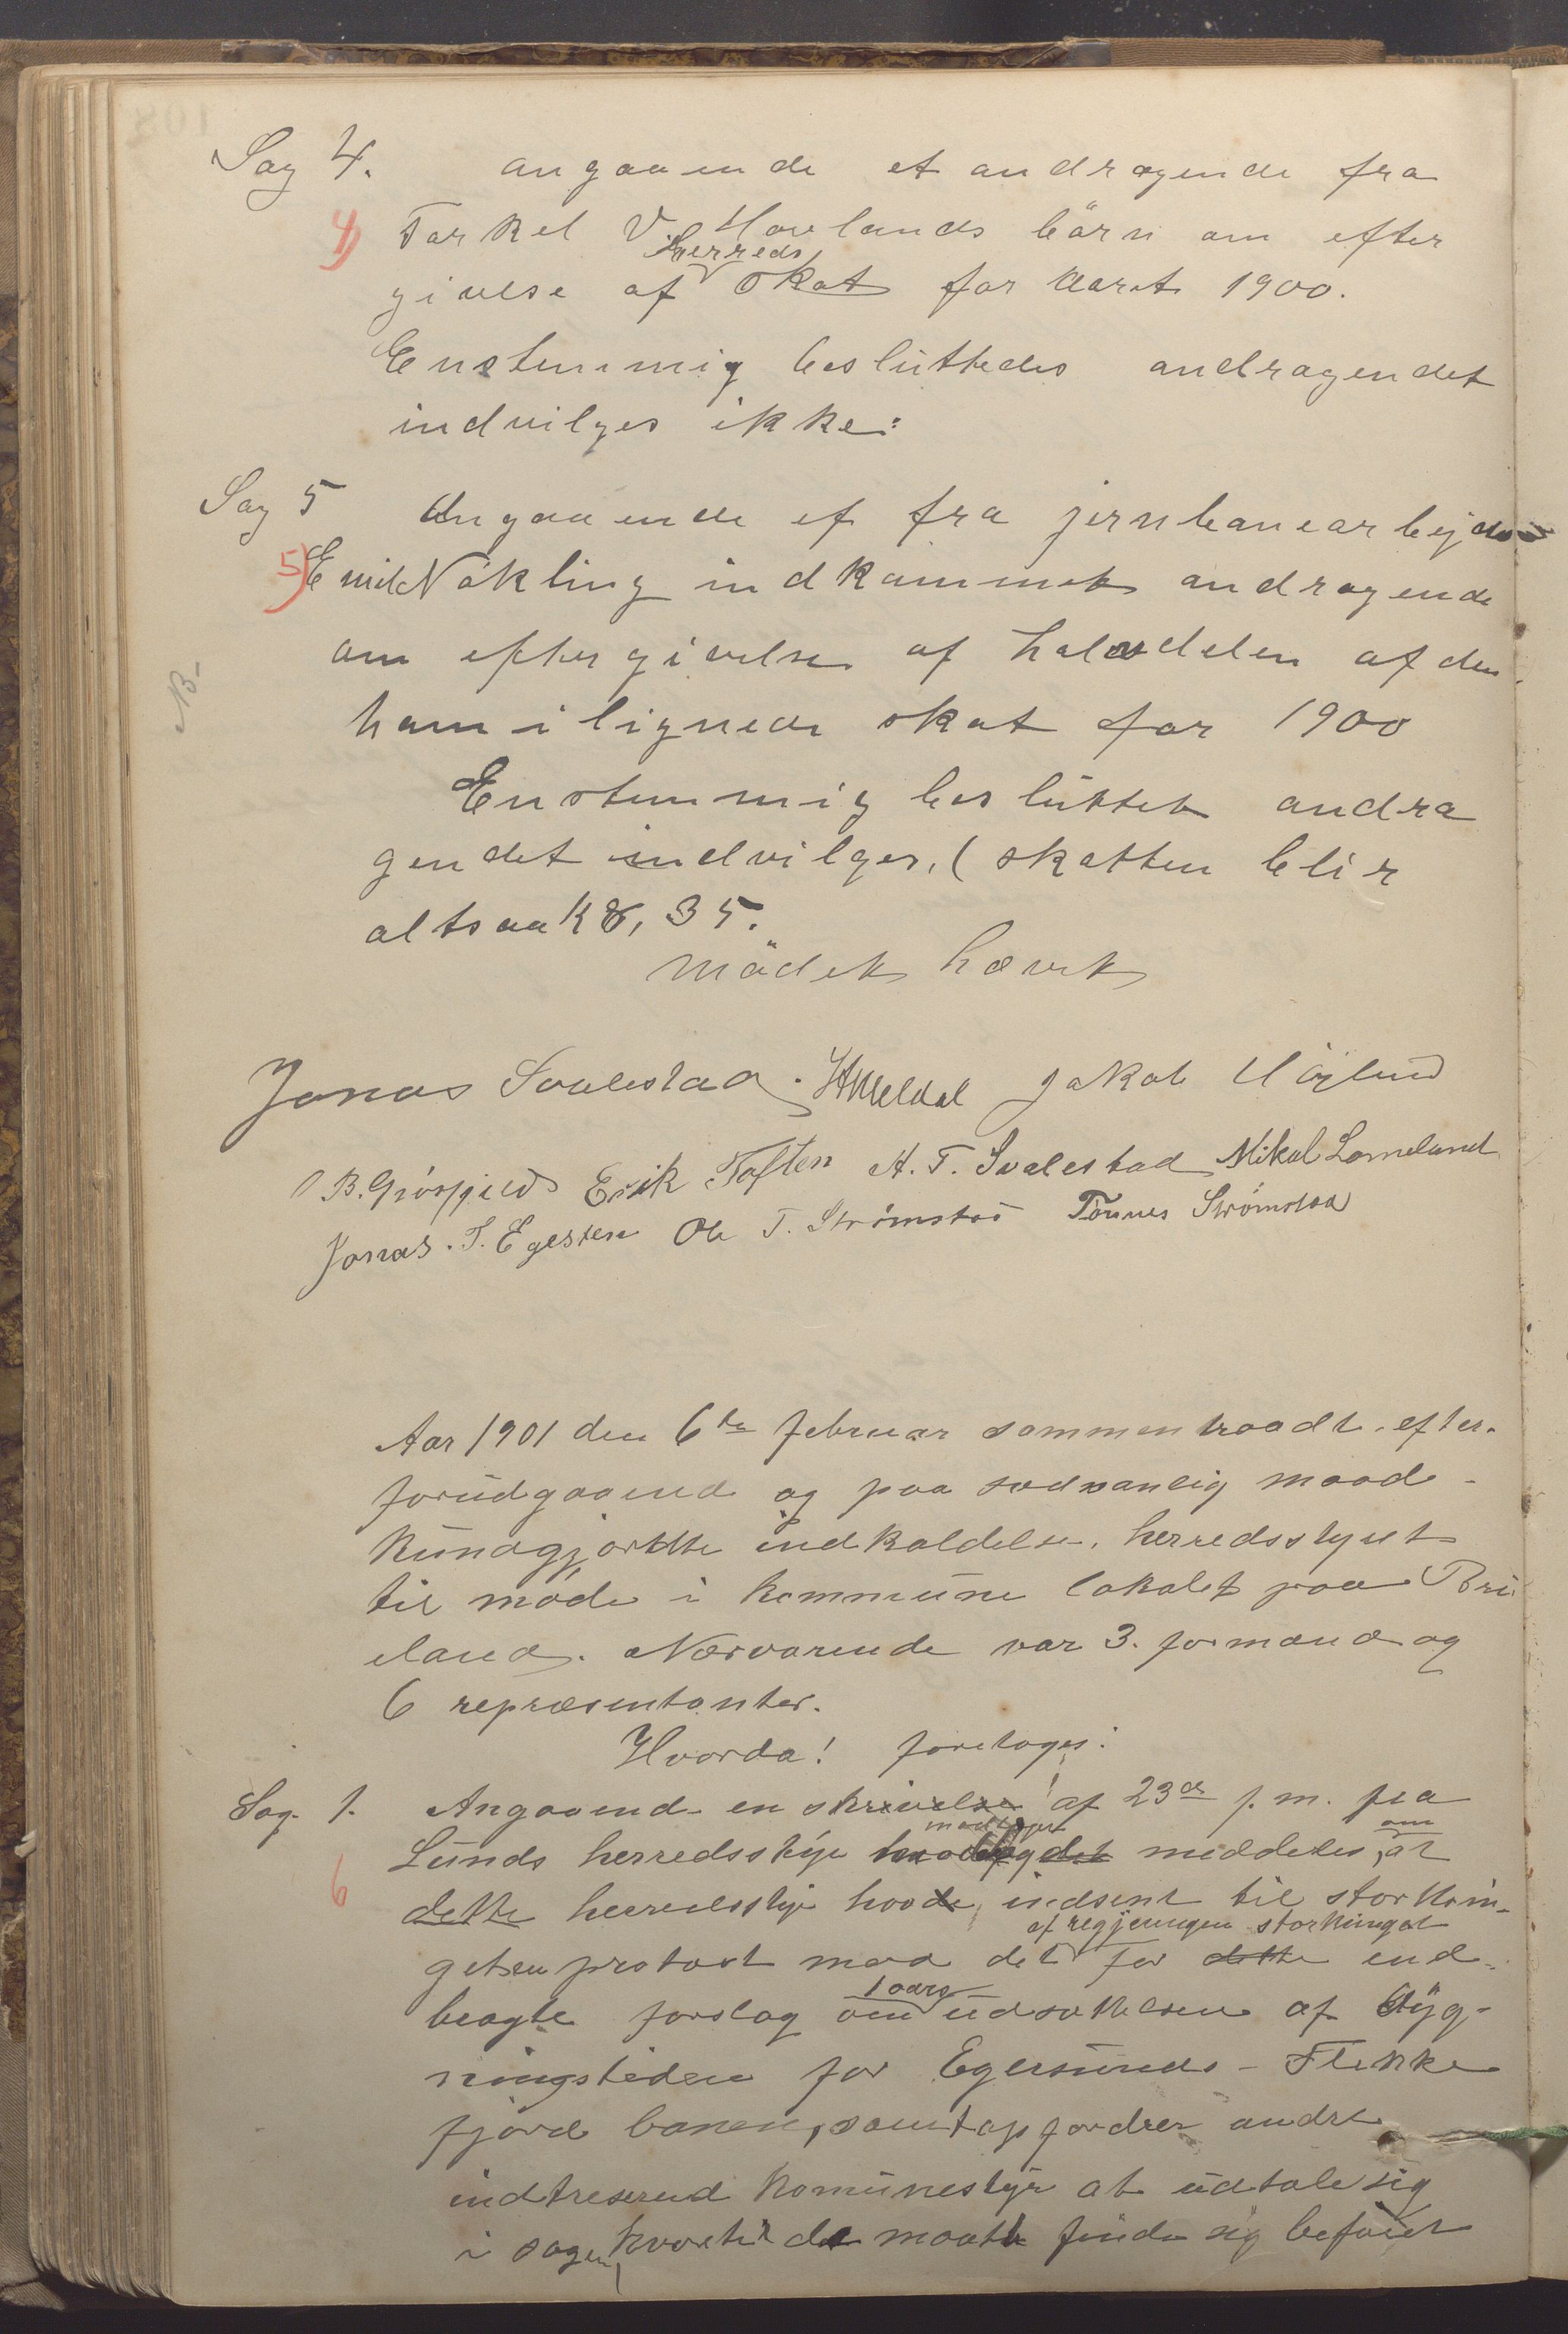 Sag 4. angaaende et andragende fra
4) Torkel V. Hovlands börn om efter
givelse af Herreds skat for Aaret 1900.
Enstemmig besluttedes andragendet
indvilges ikke:
Sag 5 Angaaende et fra jernbanearbejder
5) Emil Nökling indkommet andragende
om eftergivelse af halvdelen af den
ham ilignede skat for 1900
Enstemmig besluttet andra
gendet indvilges, (skatten blir
altsaa K 8,35.
Mödet hævet
Jonas Svalestad. Jakob Höglund
Erik Toften A. T. Svalestad Mikal Lomeland
Jonas T. Egesten Ole T. Strømstad Tönnes Strømstad
Aar 1901 den 6te februar sammentraadte efter
forudgaaende og paa sædvanlig maade
kundgjordte indkaldelse, herredsstyret
til møde i kommune lokalet paa
Nærværende var 3. formænd og
6 repræsentanter.
Hvorda! foretoges:
Sag. 1. Angaaend en skrivelse af 23de f. m. fra
Lunds herredsstyre modtaget meddeles, om at
6 dette herredsstyre havde indsent til storthin-
getsen protest mod det af regjeringen for storthinget end-
bragte forslag om 1 aars udsættelsen af byg-
ningstiden for Egersunds-Flekke
fjord banen, samt opfordrer andre
indtreserend komunestyre at udtale sig
i sagen, hvortil de maatte finde sig beføiet